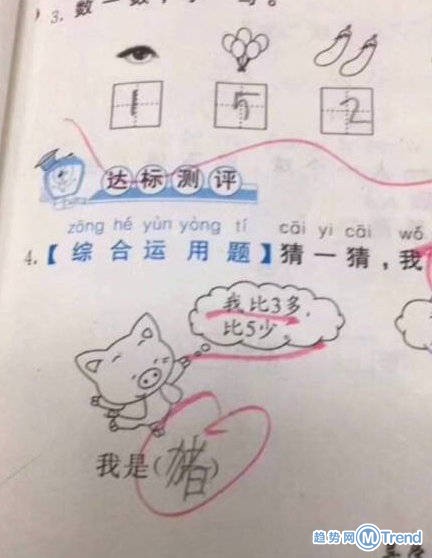 1 5 2
达标测评
zōng hé yùn yòng tí cāi yi cāi wǒ
4.【综合运用题】猜一猜，我
我比3多，
比5少。
我是(猪)
趋势网 M Trend